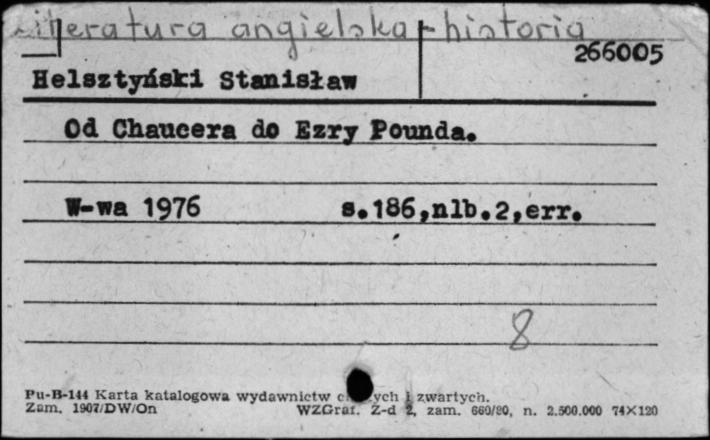 Literatura angielska - historia
266005
Helsztyński Stanisław
Od Chaucera do Ezry Pounda.
W-wa 1976 s.186,nlb.2,err.
8
Pu-B-144 Karta katalogowa wydawnictw i zwartych.
Zam. 1907/DW/On WZGraf. Z-d 2, zam. 660/80, n. 2.500.000 74×120